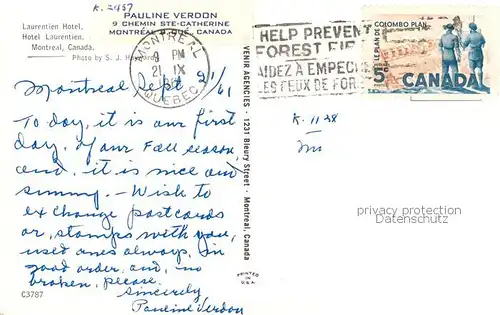 K. 2457
PAULINE VERDON
9 CHEMIN STE-CATHERINE
MONTRÉAL QUÉ., CANADA
Laurentien Hotel,
Hotel Laurentien,
Montreal, Canada.
Photo by S. J. Hayward
MONTREAL
9 PM
21 IX
QUEBEC
HELP PREVENT
FOREST FIRES
AIDEZ À EMPECHER
LES FEUX DE FORÊT
LE PLAN DE COLOMBO PLAN
5c
CANADA
Montreal Sept 21/61
To day, it is our first
day, of our Fall season,
and, it is nice and
sunny. - Wish to
exchange postcards
or, stamps with you,
used ones always, in
good order, and, no
broken, please.
Sincerely
Pauline Verdon
K. 1138
VENIR AGENCIES - 1231 Bleury Street - Montreal, Canada
privacy protection
Datenschutz
PRINTED IN
U.S.A.
C3787